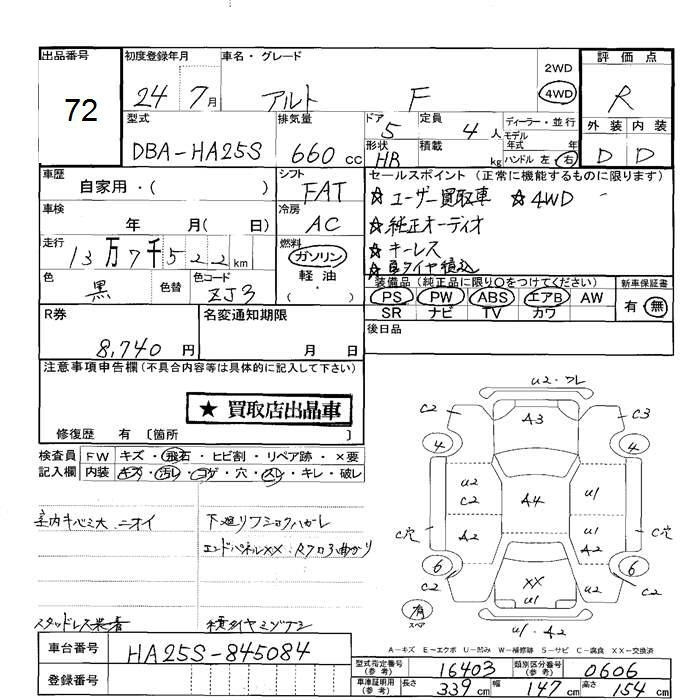 出品番号 72
初度登録年月 24 7月
車名・グレード アルト F
2WD 4WD
評価点 R
外装 内装
D D
型式 DBA-HA25S
排気量 660 cc
ドア 5
形状 HB
定員 4 人
積載 kg
ディーラー・並行
モデル年式 年
ハンドル 左・右
車歴 自家用・( )
シフト FAT
セールスポイント (正常に機能するものに限ります)
☆ユーザー買取車 ☆4WD
☆純正オーディオ
☆キーレス
車検 年 月( 日)
冷房 AC
走行 13万7千522km
燃料 ガソリン・軽油・( )
色 黒 色替
色コード ZJ3
装備品(純正品に限り○をつけてください)
PS PW ABS エアB AW
SR ナビ TV カワ
新車保証書 有・無
後日品
R券 8,740 円
名変通知期限 月 日
注意事項申告欄(不具合内容等は具体的に記入して下さい)
★ 買取店出品車
修復歴 有 〔箇所 〕
検査員記入欄
FW キズ・飛石・ヒビ割・リペア跡・×要
内装 キズ・汚レ・コゲ・穴・スレ・キレ・破レ
室内キバミ大 ニオイ
エンドパネルXX
スタッドレス
u2・ワレ
C2 A3 C3
4 4
u2 C2 A4 u1
C穴 A2 u1 A2 C穴
6 6
C2 XX u1 u2 C2
有 スペア
u1・A2
A-キズ E-エクボ U-凹み W-補修跡 S-サビ C-腐食 XX-交換済
車台番号 HA25S-845084
登録番号
型式指定番号(参考) 16403
類別区分番号(参考) 0606
車庫証明用(参考) 長さ 339cm 幅 147cm 高さ 154cm